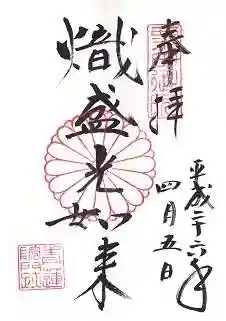 奉拝
平成二十六年
四月五日
熾盛光如来
青蓮
院門
跡